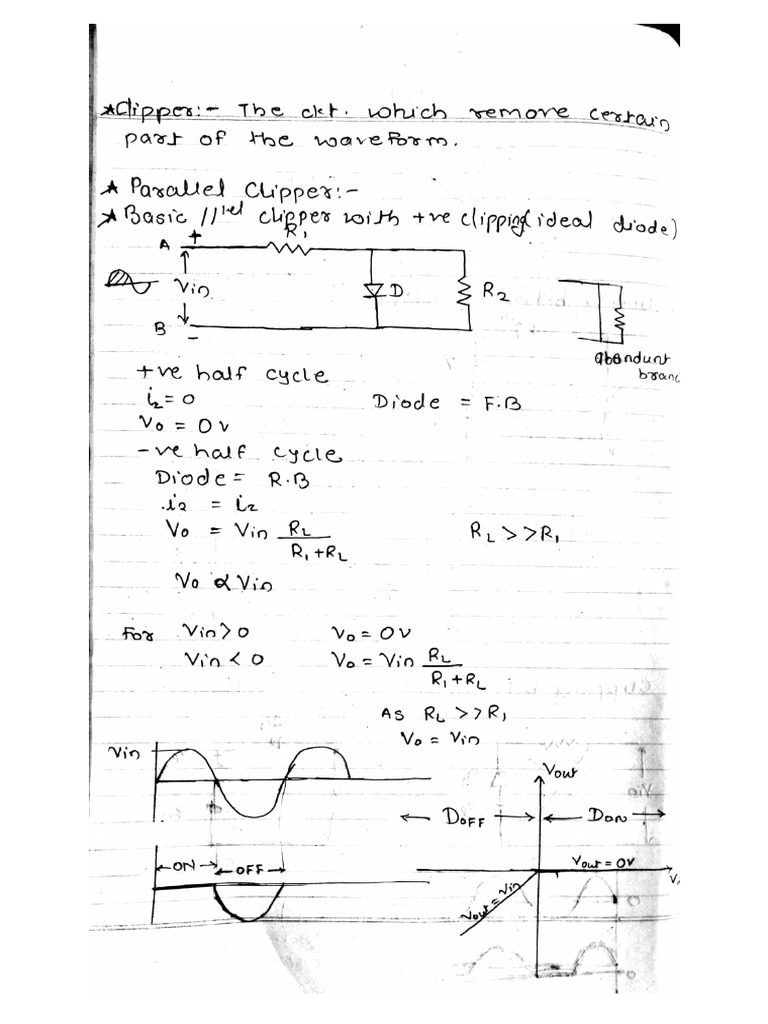 *Clipper:- The ckt. which remove certain
part of the waveform.
* Parallel Clipper:-
* Basic //rel clipper with +ve clipping (ideal diode)
A + R1
Vin D R2
B -
abundunt
+ve half cycle
i2 = 0 Diode = F.B
Vo = 0v
-ve half cycle
Diode = R.B
Vo = Vin RL / R1+RL RL >>R1
Vo ∝ Vin
For Vin>0 Vo = 0V
Vin < 0 Vo = Vin RL / R1+RL
As RL >>R1
Vo = Vin
Vin
Vout
← DOFF → ← DON →
←ON→ ←OFF→
Vout = 0V
Vout = Vin